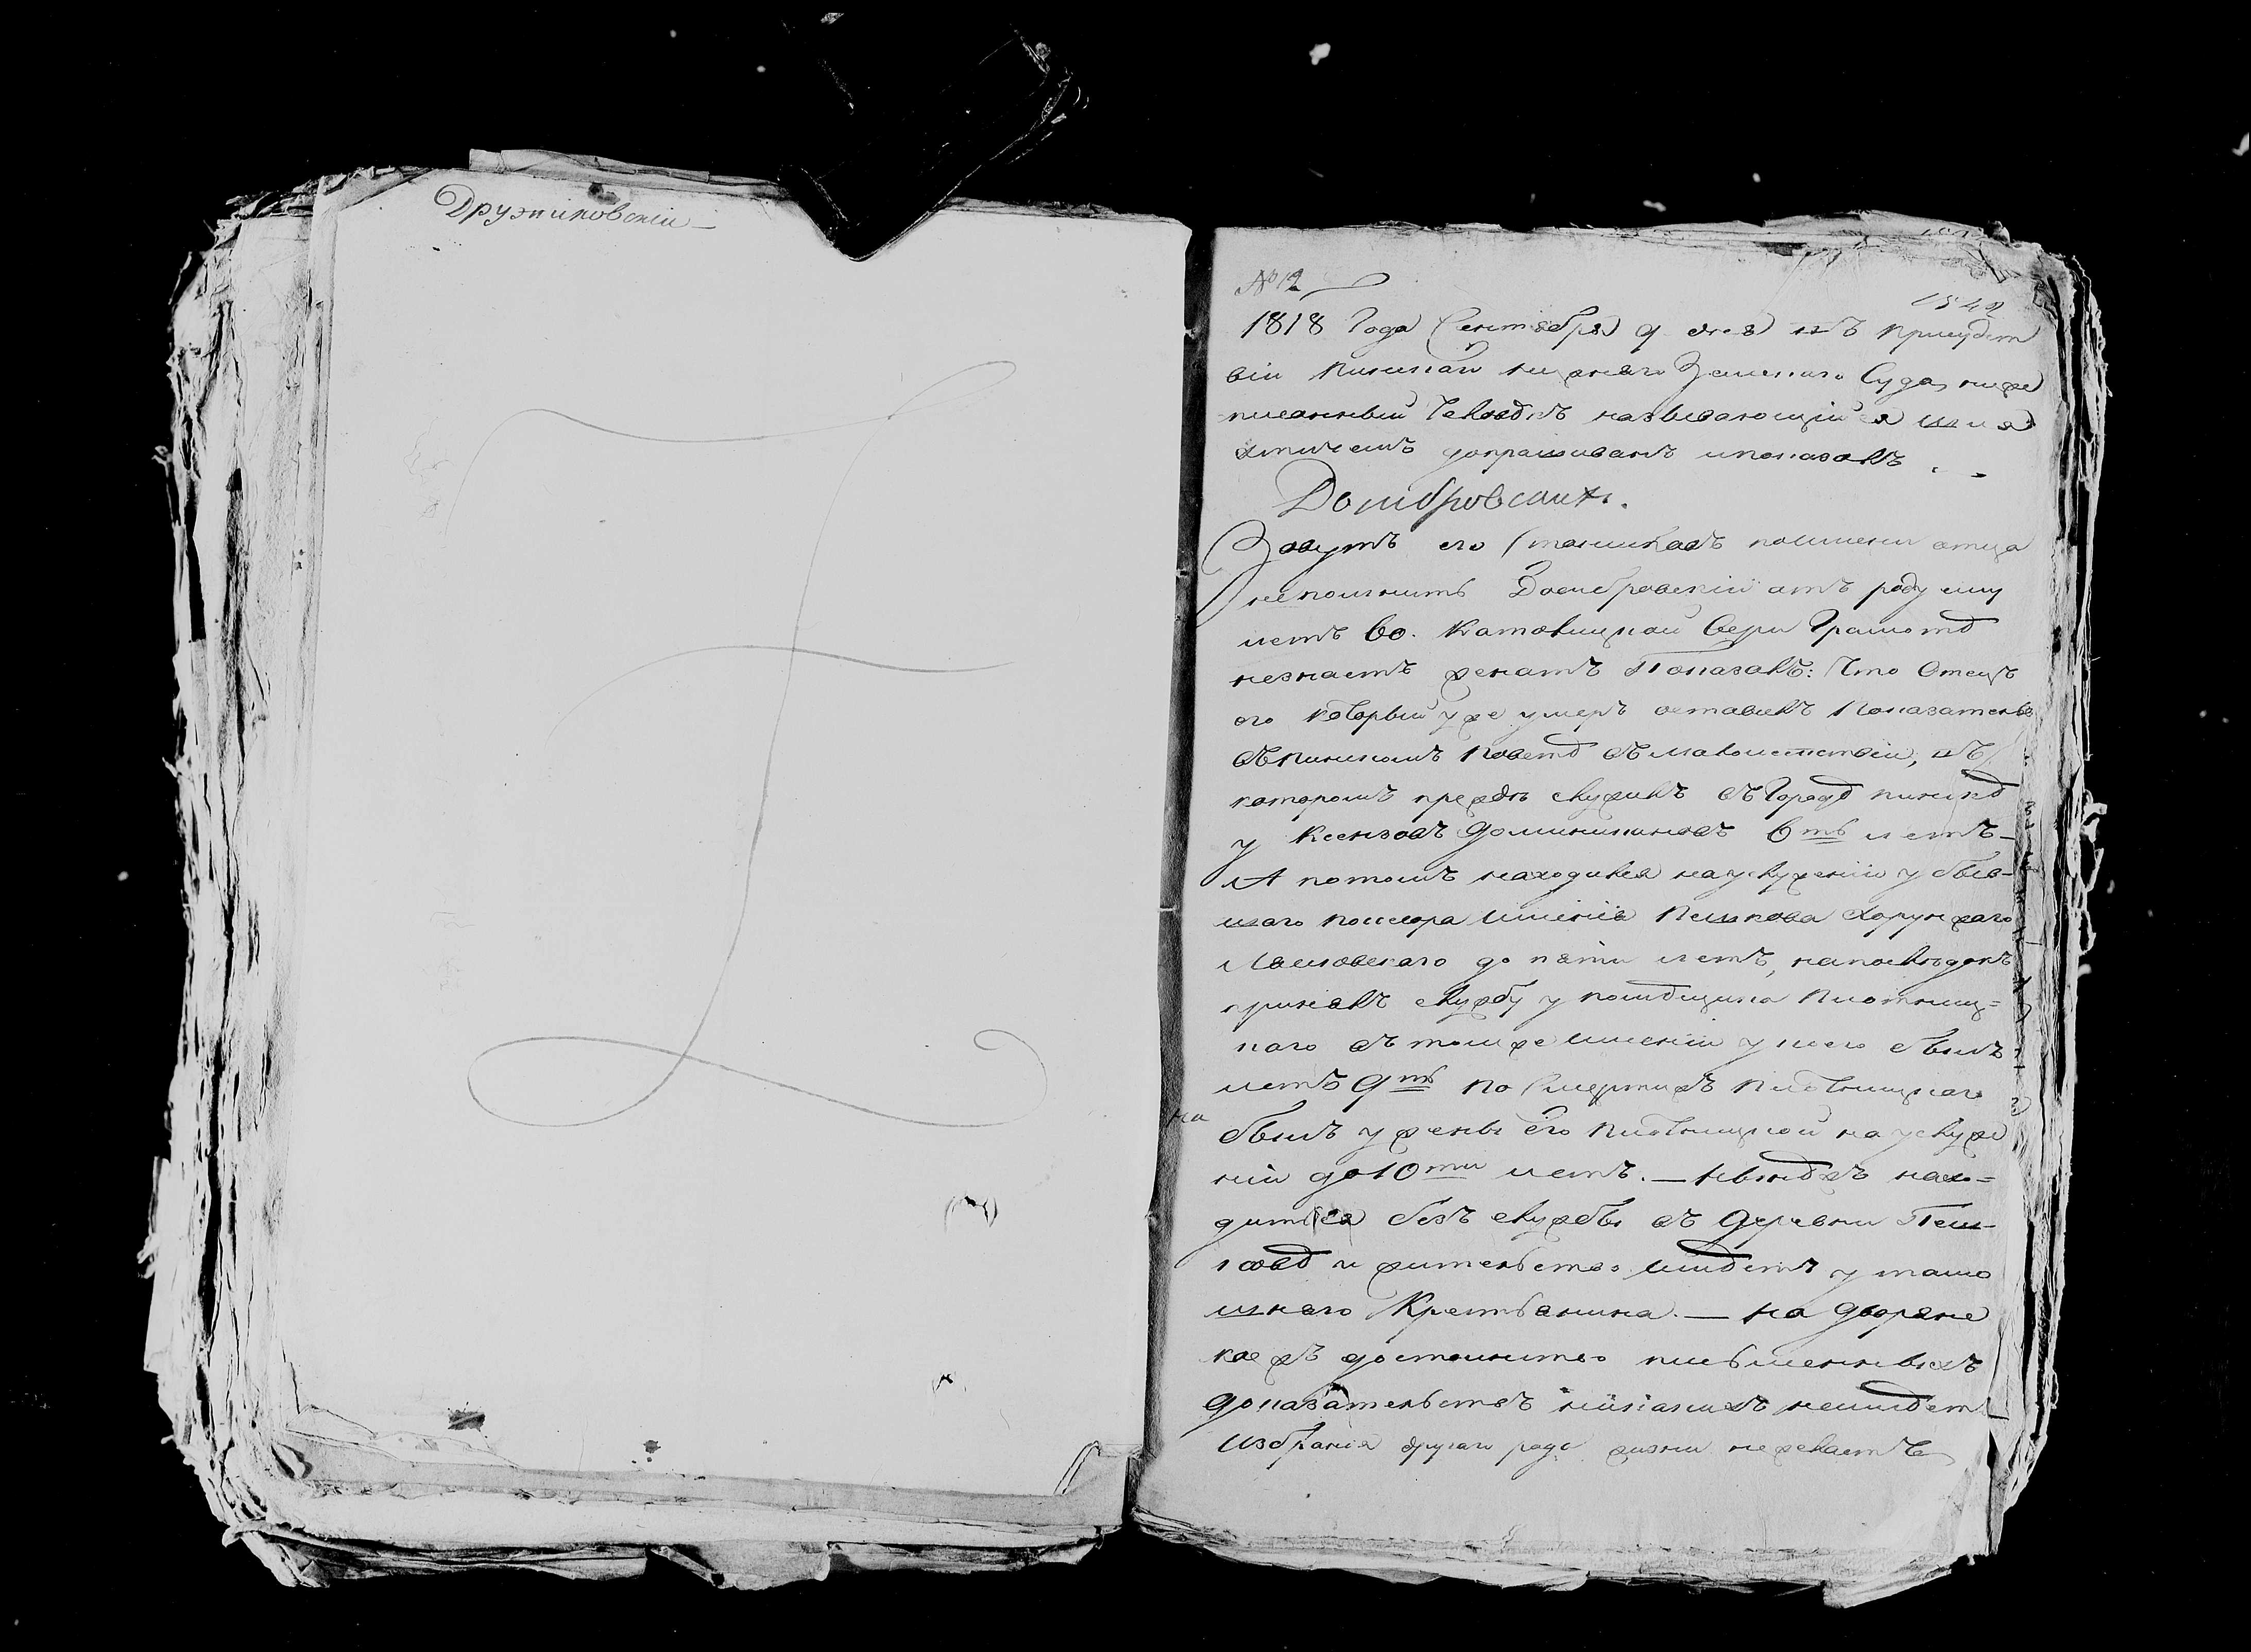 Дружиловскіи
№ 12
1548
1818 Года Сентября 9 дня въ присудст
віи пинскаго нижняго Земскаго Суда, ниже
писанный Человѣкъ называющійся шля
хтичемъ допрашиванъ и показалъ
Домбровскій.
Зовутъ его Станиславъ поимени отца
непомнитъ Домбровскій отъ роду ему
летъ 60. Католицкой веры Грамотѣ
незнаетъ женатъ Показалъ: Что Отецъ
его который уже умеръ оставилъ Показателя
въ пинскомъ поветѣ въ малолетствіи, въ
которомъ преждѣ служилъ въ Городѣ пинскѣ
у Ксензовъ доминикановъ 6ть летъ
А потомъ находился на услуженіи у быв-
шаго посесора именія Пешкова Хорунжаго
до пяти летъ, напослѣдокъ
принялъ службу у помѣщика Плотниц=
каго въ томже именіи у него былъ
летъ 9ть По смерти жъ Плотницкаго
на
былъ у жены его Плотницкой на услуже
ніи до 10ти летъ. — Нынѣ жъ нахо=
дится безъ службы въ Деревни Пеш-
ковѣ и жительство имѣетъ у тамо
шняго Крестьянина. — На дворянс
кое жъ достоинство письменныхъ
доказательствъ никакихъ неимѣетъ
Избранія другаго рода жизни нежелаетъ